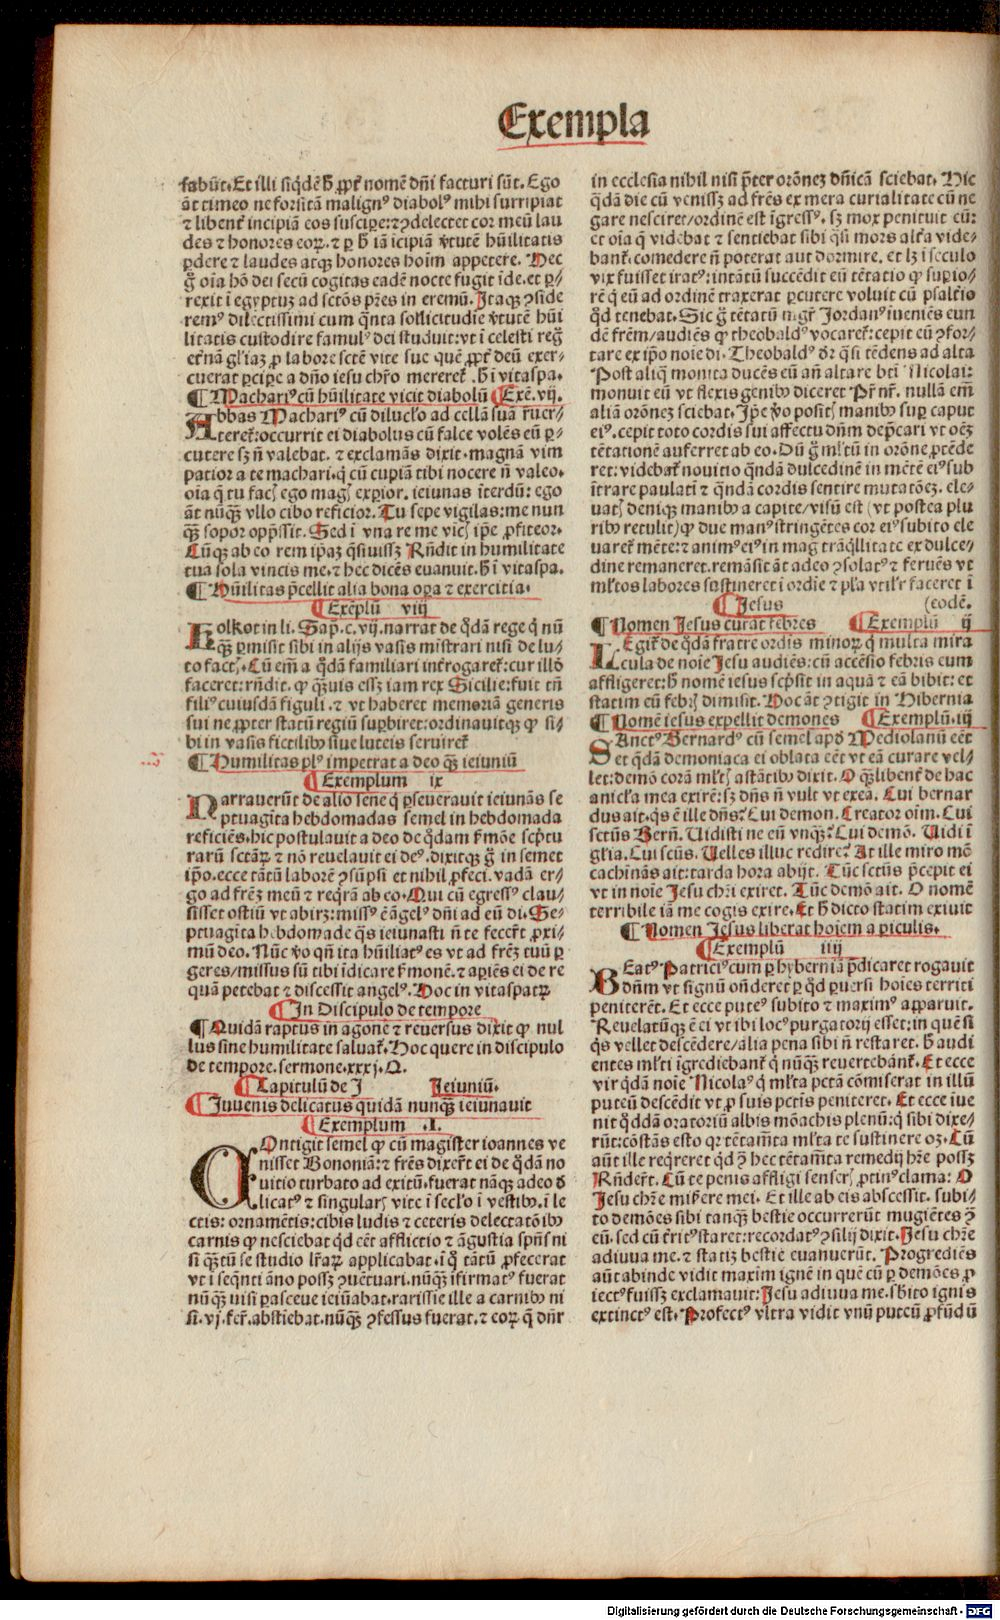 Exempla
fabūt. Et illi siq̄dē h̄ ꝓpt̄ nomē dn̄i facturi sūt. Ego
āt timeo ne forsitā malignꝰ diabolꝰ mihi surripiat
⁊ libent̄ incipiā eos suscipe: ⁊ ꝯdelectet cor meū lau
des ⁊ honores eoꝝ. ⁊ ꝑ h̄ iā īcipiā v̄tutē hūilitatis
ꝑdere ⁊ laudes atqꝫ honores hoīm appetere. Hec
g̃ oīa hō dei secū cogitas eadē nocte fugit īde. et ꝑ-
rexit ī egyptuꝫ ad sctōs pr̄es in eremū. Itaqꝫ ꝯside
remꝰ dilectissimi cum q̄nta sollicitudie v̄tutē hūi
litatis custodire famulꝰ dei studuit: vt ī celesti reg̃
et̄nā gl̄iaꝫ ꝓ labore sctē vite sue quē ꝓpt̄ deū exer-
cuerat ꝑcipe a dn̄o iesu chr̄o mereret̄. h̄ ī vitaspa.
¶ Machariꝰ cū hūilitate vicit diabolū ¶ Exē. vij.
Abbas Machariꝰ cū diluclo ad cellā suā r̄uer-
teret̄: occurrit ei diabolus cū falce volēs eū ꝑ-
cutere sꝫ n̄ valebat. ⁊ exclamās dixit. magnā vim
patior a te machari. q̄ cū cupiā tibi nocere n̄ valeo.
oīa q̄ tu facꝭ ego magꝭ exꝑior. ieiunas īterdū: ego
āt nūqꝫ̄ vllo cibo reficior. Tu sepe vigilas: me nun
qꝫ̄ sopor opp̄ssit. Sed ī vna re me vicꝭ ip̄e ꝓfiteor.
Cūqꝫ ab eo rem ip̄aꝫ q̄siuissꝫ Rn̄dit in humilitate
tua sola vincis me. ⁊ hec dicēs euanuit. h̄ ī vitaspa.
¶ Hūilitas p̄cellit alia bona oꝑa ⁊ exercitia.
¶ Exēplū viij
Holkot in li. Sap̄. c. vij. narrat de q̄dā rege q̄ nū
qꝫ̄ ꝑmisit sibi in alijs vasis mīstrari nisi de lu-
to factꝭ. Cū em̄ a q̄dā familiari int̄rogaret̄: cur illō
faceret: rn̄dit. ꝙ qꝫ̄uis essꝫ iam rex Sicilie: fuit tn̄
filiꝰ cuiusdā figuli. ⁊ vt haberet memoriā generis
sui ne ꝓpter statū regiū suꝑbiret: ordinauitqꝫ ꝙ si-
bi in vasis fictilibꝰ siue luteis seruiret̄
¶ Humilitas plꝰ impetrat a deo qꝫ̄ ieiuniū
¶ Exemplum ix
Narrauerūt de alio sene q̄ ꝑseuerauit ieiunās se
ptuagita hebdomadas semel in hebdomada
reficiēs. hic postulauit a deo de q̄dam f̄mōe sc̄ptu
rarū sctāꝝ ⁊ nō reuelauit ei deꝰ. dixitqꝫ g̃ in semet
ip̄o. ecce tātū laborē ꝯsūpsi et nihil ꝓfeci. vadā er-
go ad fr̄eꝫ meū ⁊ req̄rā ab eo. Qui cū egressꝰ clau-
sisset ostiū vt abirꝫ: missꝰ ē āgelꝰ dn̄i ad eū di. Se-
ptuagita hebdomade q̄s ieiunasti n̄ te fecer̄t ꝓxi-
mū deo. Nūc v̄o qn̄ ita hūiliatꝰ es vt ad fr̄eꝫ tuū ꝑ
geres/missus sū tibi īdicare f̄monē. ⁊ aꝑiēs ei de re
quā petebat ⁊ discessit angelꝰ. Hoc in vitaspatꝝ
¶ In Discipulo de tempore
¶ Quidā raptus in agone ⁊ reuersus dixit ꝙ nul
lus sine humilitate saluat̄. Hoc quere in discipulo
de tempore. sermone. xxxj. Q.
¶ Capitulū de I Ieiuniū.
¶ Iuuenis delicatus quidā nunqꝫ̄ ieiunauit
¶ Exemplum .I.
COntigit semel ꝙ cū magister ioannes ve
nisset Bononiā: ⁊ fr̄es dixer̄t ei de q̄dā no
uitio turbato ad exitū. fuerat nāqꝫ adeo d̄
licatꝰ ⁊ singularꝭ vite ī seclo ī vestibꝰ. ī le
ctis: ornamētis: cibis ludis ⁊ ceteris delectatōibꝰ
carnis ꝙ nesciebat q̄d eēt afflictio ⁊ āgustia spūs ni
si qꝫ̄tū se studio lr̄aꝝ applicabat. ī q̄ tātū ꝓfecerat
vt ī seq̄nti āno possꝫ ꝯuētuari. nūqꝫ̄ īfirmatꝰ fuerat
nūqꝫ̄ nisi ꝑasceue ieiūabat. rarissie ille a carnibꝰ ni
si. vj. fer̄. abstiebat. nūqꝫ̄ ꝯfessus fuerat. ⁊ eoꝝ q̄ dn̄r
in ecclesia nihil nisi p̄ter orōneꝫ dn̄icā sciebat. Hic
q̄dā die cū venissꝫ ad fr̄es ex mera curialitate cū ne
gare nesciret/ordinē est īgressꝰ. sꝫ mox penituit eū:
et oīa q̄ videbat ⁊ sentiebat sibi q̄si mors alt̄a vide-
bant̄. comedere n̄ poterat aut dormire. et lꝫ ī seculo
vix fuisset iratꝰ: intātū succēdit eū tētatio ꝙ supꝑio-
rē q̄ eū ad ordinē traxerat ꝑcutere voluit cū psalt̄io
q̄d tenebat. Sic g̃ tētatū mgr̄ Jordanꝰ iueniēs eun
dē fr̄em/audiēs ꝙ theobaldꝰ vocaret̄: cepit eū ꝯfor-
tare ex ip̄o noie di. Theobaldꝰ dr̄ q̄si tēdens ad alta
Post aliq̄ monita ducēs eū an̄ altare bti Nicolai:
monuit eū vt flexis genibꝰ diceret Pr̄ nr̄. nullā em̄
aliā orōneꝫ sciebat. Ip̄e v̄o positꝭ manibꝰ suꝑ caput
eiꝰ. cepit toto cordis sui affectu dn̄m dep̄cari vt oēꝫ
tētationē auferret ab eo. Dū g̃ ml̄tū in orōne ꝓtēde
ret: videbat̄ nouitio q̄ndā dulcedinē in mētē eiꝰ sub
ītrare paulati ⁊ q̄ndā cordis sentire mutatōeꝫ. ele-
uatꝭ deniqꝫ manibꝰ a capite/visū est (vt postea plu
ribꝰ retulit) ꝙ due manꝰ stringētes cor eiꝰ subito ele
uaret̄ mēte: ⁊ animꝰ eiꝰ in mag trāq̄llitate ex dulce-
dine remaneret. remāsit āt adeo ꝯsolatꝰ ⁊ feruēs vt
ml̄tos labores sustineret ī ordie ⁊ pl̄a vtilr̄ faceret ī
¶ Jesus (eodē.
¶ Nomen Jesus curat febres ¶ Exemplū ij
LEgit̄ de q̄dā fratre ordis minoꝝ q̄ multa mira
cula de noie Jesu audiēs: cū accēsio febris eum
affligeret: h̄ nomē iesus sc̄psit in aquā ⁊ eā bibit: et
statim eū febꝭ dimisit. Hoc āt ꝯtigit in Hibernia
¶ Nomē iesus expellit demones ¶ Exemplū. iij
SAnctꝰ Bernardꝰ cū semel apō Mediolanū eēt
et q̄dā demoniaca ei oblata eēt vt eā curare vel-
let: demō corā ml̄tꝭ astātibꝰ dixit. O qꝫ̄ libent̄ de hac
anicl̄a mea exirē: sꝫ dn̄s n̄ vult vt exeā. Cui bernar
dus ait. q̄s ē ille dn̄s? Cui demon. Creator oīm. Cui
sctūs Bern̄. Uidisti ne eū vnqꝫ̄? Cui demō. Uidi ī
gl̄ia. Cui scūs. Uelles illuc redire? At ille miro mō
cachināsꝰ ait: tarda hora abijt. Tūc sctūs p̄cepit ei
vt in noie Jesu chr̄i exiret. Tūc demō ait. O nomē
terribile iā me cogis exire. Et h̄ dicto statim exiuit
¶ Nomen Jesus liberat hoiem a ꝑiculis.
¶ Exemplū iiij
BEatꝰ Patriciꝰ cum ꝑ hyberniā p̄dicaret rogauit
dn̄m vt signū oñderet ꝑ q̄d ꝑuersi hoies territi
peniterēt. Et ecce puteꝰ subito ⁊ maximꝰ apparuit.
Reuelatūqꝫ ē ei vt ibi locꝰ purgatorij esset: in quē si
q̄s vellet descēdere/alia pena sibi n̄ restaret. h̄ audi
entes ml̄ti īgrediebant̄ q̄ nūqꝫ̄ reuertebāt̄. Et ecce
vir q̄dā noie Nicolaꝰ q̄ ml̄ta pctā cōmiserat in illū
puteū descēdit vt ꝓ suis pctīs peniteret. Et ecce iue
nit q̄ddā oratoriū albis mōachis plenū: q̄ sibi dixe-
rūt: cōstās esto qꝛ tētam̄ta ml̄ta te sustinere oꝫ. Cū
aūt ille req̄reret q̄d ꝯ hec tētam̄ta remedij hr̄e possꝫ
Rn̄der̄t. Cū te penis affligi senserꝭ ꝓtinꝰ clama: O
Jesu chr̄e miserere mei. Et ille ab eis abscessit. subi-
to demōes sibi tanqꝫ̄ bestie occurrerūt mugiētes ꝯ
eū. sed cū t̄ritꝰ staret: recordatꝰ ꝯsilij dixit. Jesu chr̄e
adiuua me. ⁊ statiꝫ bestie euanuerūt. Progrediēs
aūt abinde vidit maxim ignē in quē cū ꝑ demōes ꝓ
iectꝰ fuissꝫ exclamauit: Jesu adiuua me. sbito ignis
extinctꝰ est. Profectꝰ vltra vidit vnū puteū ꝓfūdū
Digitalisierung gefördert durch die Deutsche Forschungsgemeinschaft - DFG